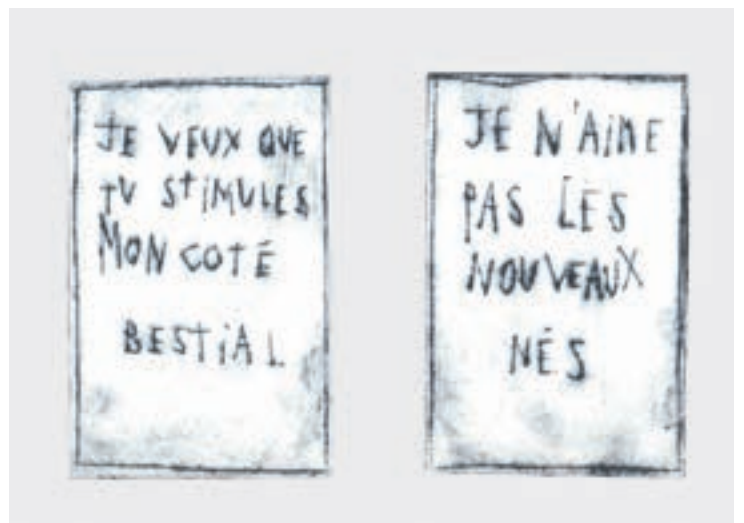 JE VEUX QUE
TU STiMULES
MON COTÉ
BESTiAL
JE N'AiME
PAS LES
NOUVEAUX
NÉS